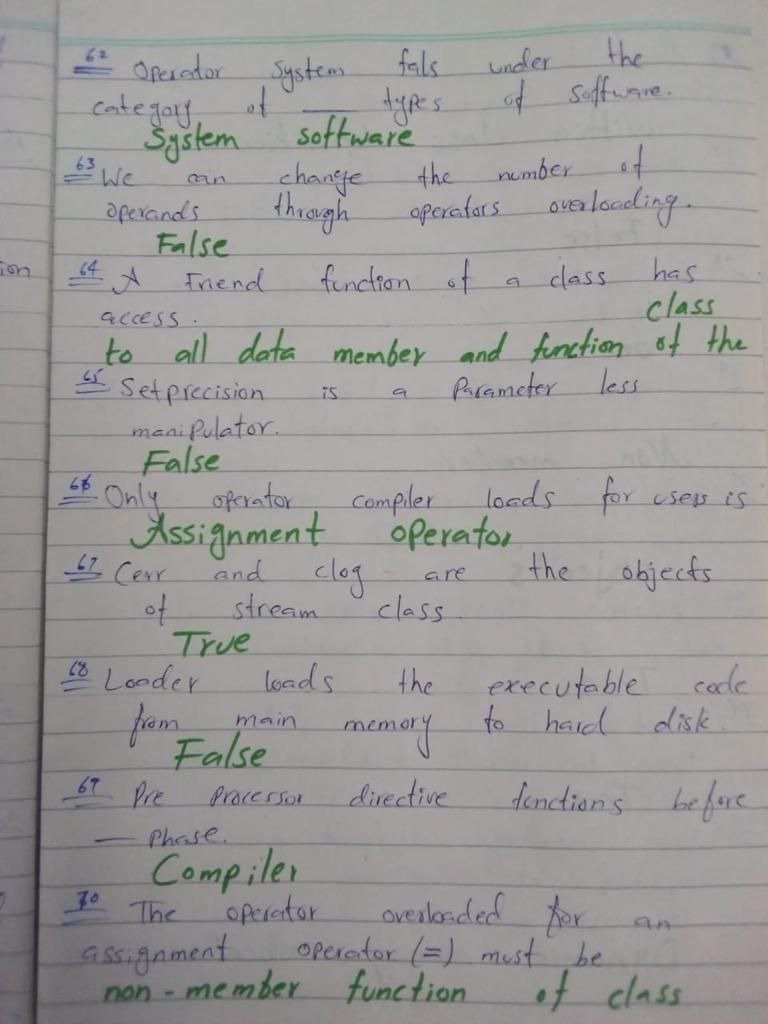 62 Operator System fals under the
category of ___ types of software.
System software
63 We can change the number of
operands through operators overloading.
False
ion
64 A Friend function of a class has
access. class
to all data member and function of the
65 Setprecision is a Parameter less
maniPulator.
False
66 Only operator compiler loads for users is
Assignment operator
67 Cerr and clog are the objects
of stream class.
True
68 Loader loads the executable code
from main memory to hard disk.
False
69 Pre Processor directive functions before
— Phase.
Compiler
70 The operator overloaded for an
assignment operator (=) must be
non-member function of class